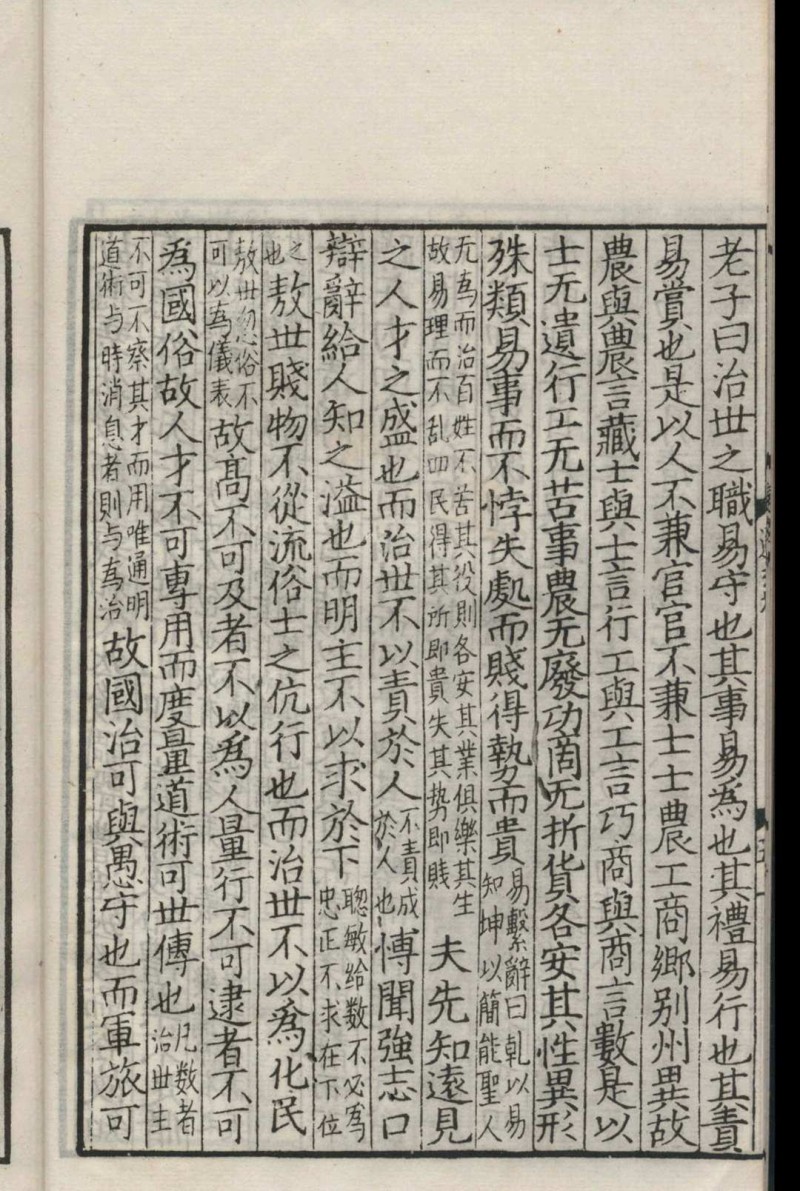 老子曰治世之職易守也其事易為也其禮易行也其責
易賞也是以人不兼官官不兼士士農工商鄉别州異故
農與農言藏士與士言行工與工言巧商與商言數是以
士无遺行工无苦事農无廢功商无折貨各安其性異形
殊類易事而不悖失處而賤得勢而貴易繫辭曰乹以易知坤以簡能聖人
无為而治百姓不苦其役則各安其業俱樂其生故易理而不乱四民得其所即貴失其势即賤夫先知遠見
之人才之盛也而治世不以責於人不責成於人也博聞強志口
辯辭給人知之溢也而明主不以求於下聦敏給数不必為忠正不求在下位
之也敖世賤物不從流俗士之伉行也而治世不以為化民
敖世忽俗不可以為儀表故髙不可及者不以為人量行不可逮者不可
為國俗故人才不可專用而度量道術可世傳也凡数者治世主
不可不察其才而用唯通明道術与時消息者則与為治故國治可與愚守也而軍旅可